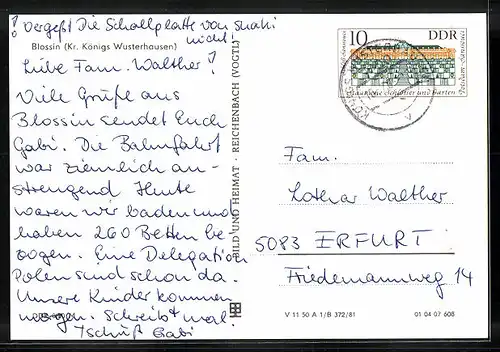 ! Vergeßt Die Schallplatte von
nicht!
Blossin (Kr. Königs Wusterhausen)
Liebe Fam. Walther!
Viele Grüße aus
Blossin sendet Euch
Gabi. Die Bahnfahrt
war ziemlich an-
strengend. Heute
waren wir baden und
haben 260 Betten be-
zogen. Eine Delegation
Polen sind schon da.
Unsere Kinder kommen
morgen. Schreibt mal.
Tschüß Gabi
BILD UND HEIMAT · REICHENBACH (VOGTL)
10 DDR
Schlösser und Gärten
Fam.
Lothar Walther
5083 ERFURT
Friedemannweg 14
V 11 50 A 1/B 372/81 01 04 07 608